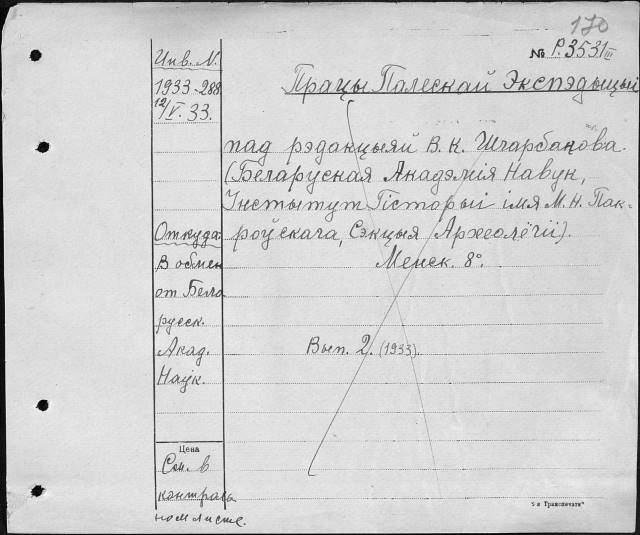 170
№ Р.3531 III
Инв. N.
1933-288
12/V. 33.
Працы Палескай Экспэдыцыі
пад рэдакцыяй В. К. Шчарбакова.
(Беларуская Акадэмія Навук,
Інстытут Гісторыі імя М. Н. Пак-
роўскага, Сэкцыя Археолёгіі).
Менск. 8°.
Откуда:
В обмен
от Бело
русск.
Акад.
Наук.
Вып. 2. (1933).
Цена
См. в
контроль
ном листе.
"5-я Транспечати"